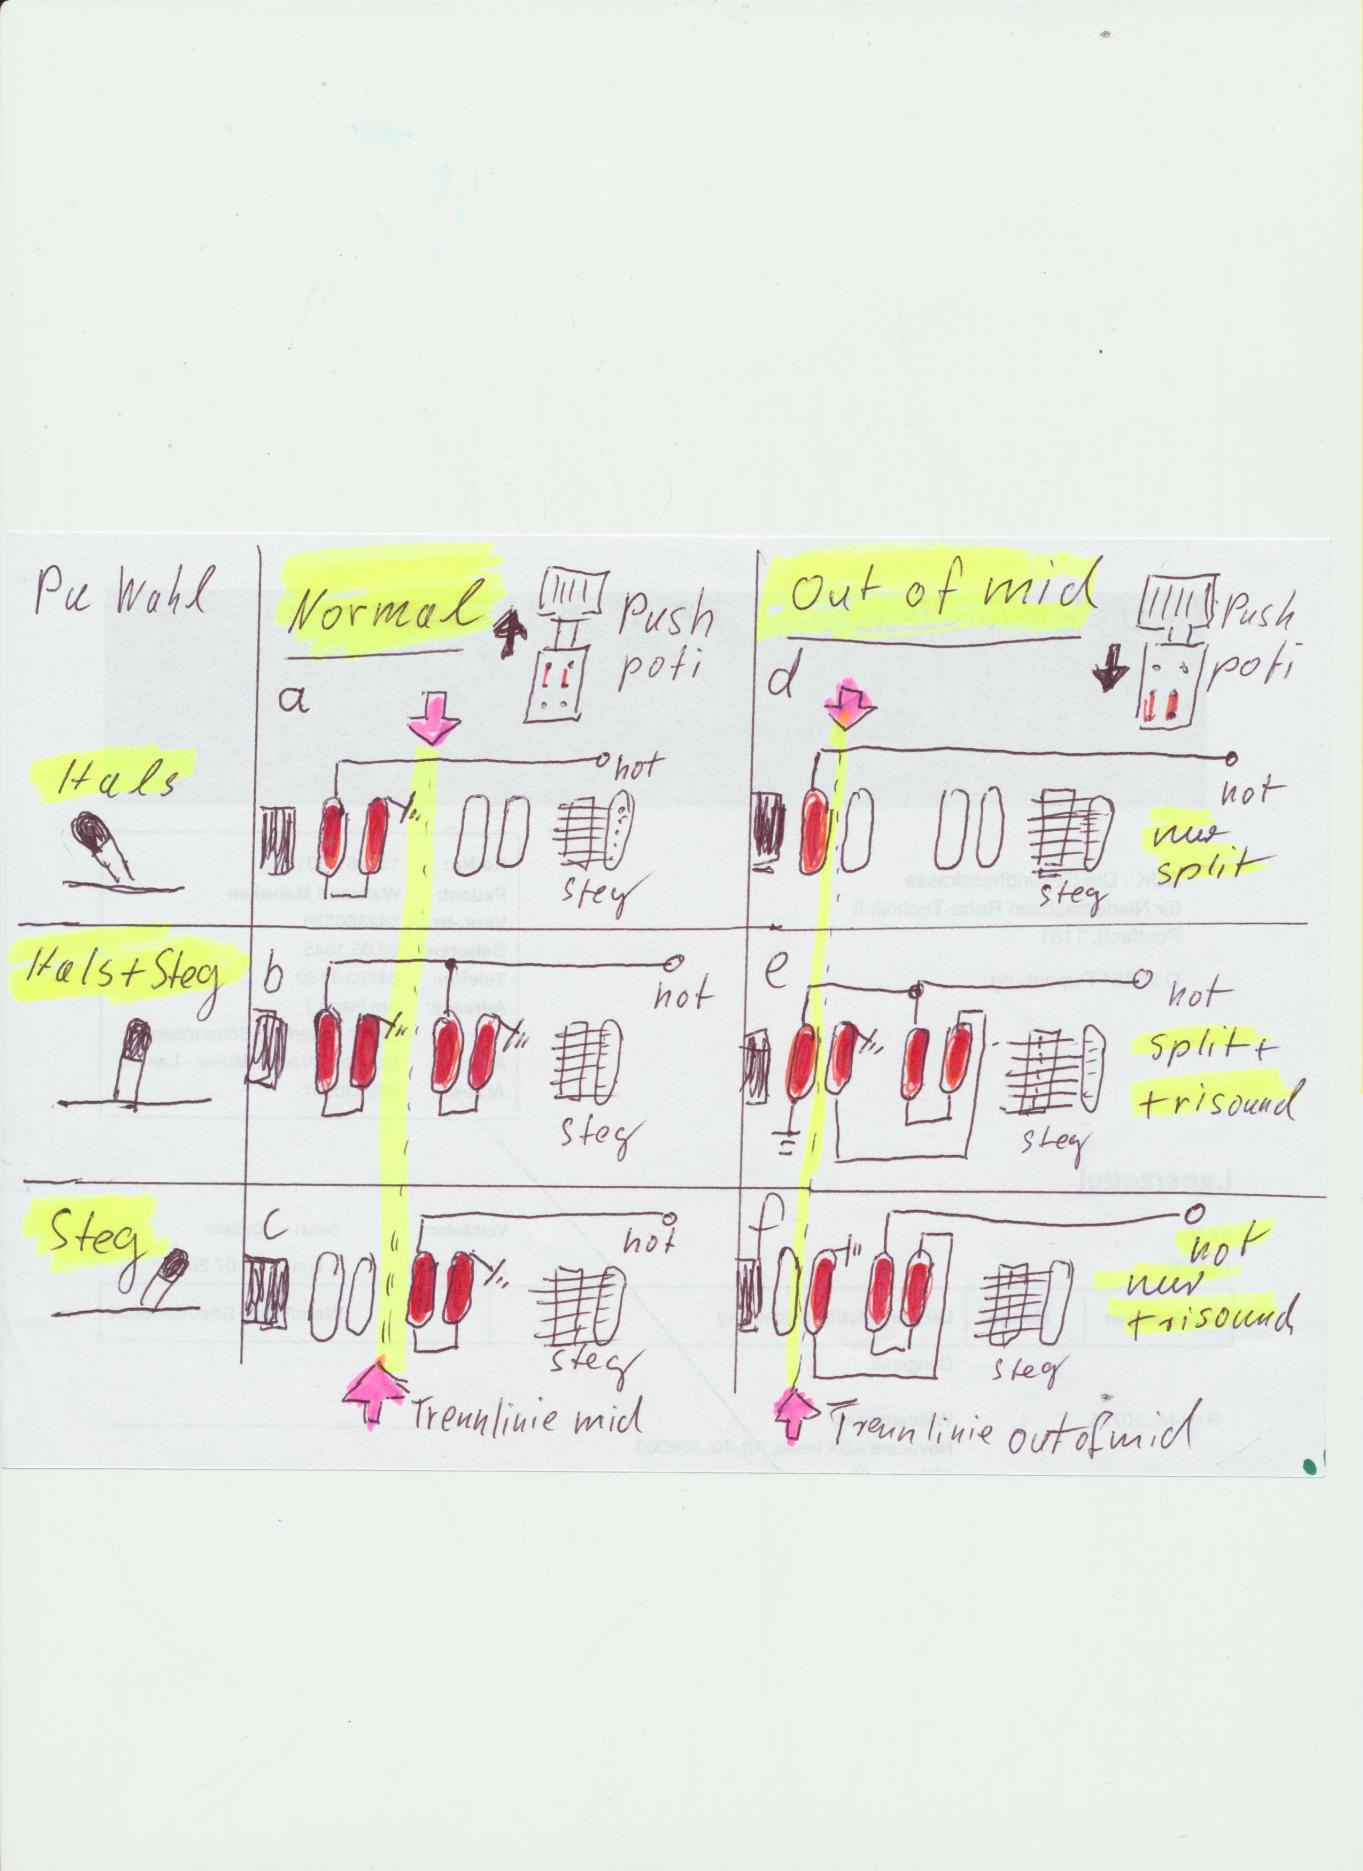 Pu Wahl
Normal
Push
poti
Out of mid
Push
poti
a
d
Hals
hot
Steg
hot
nur
split
Steg
Hals+Steg
b
hot
Steg
e
hot
split+
trisound
Steg
Steg
c
hot
Steg
f
hot
nur
trisound
Steg
Trennlinie mid
Trennlinie outofmid